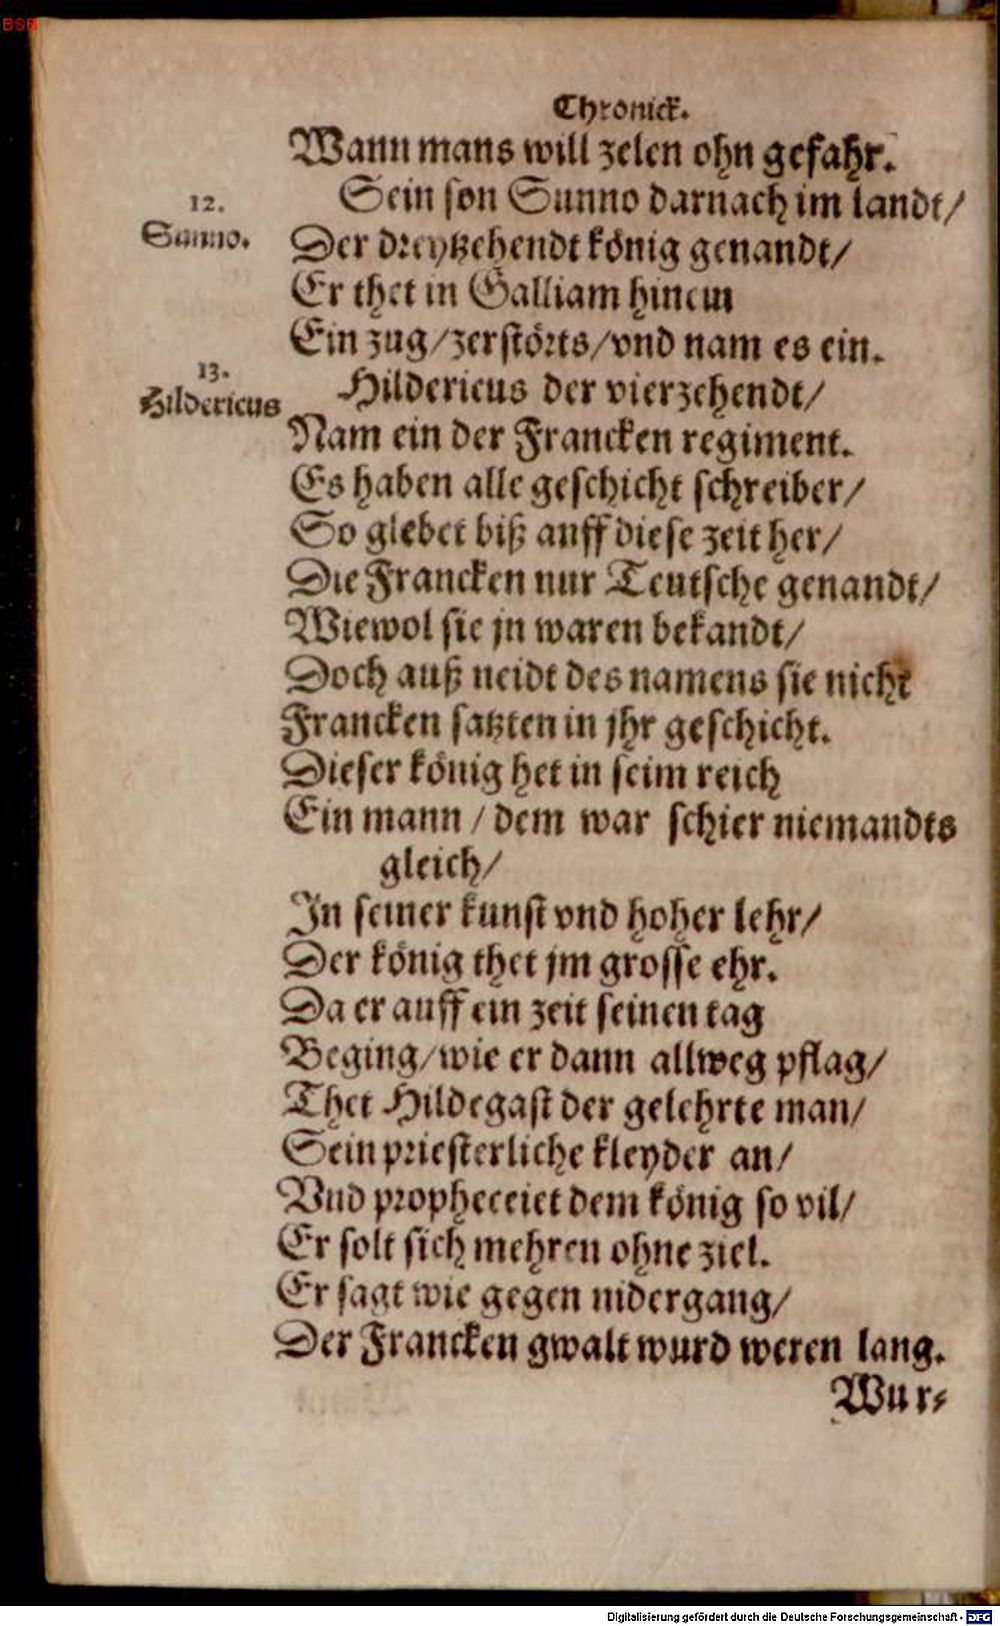 BSB
Chronick.
Wann mans will zelen ohn gefahr.
Sein son Sunno darnach im landt/
12.
Sunno.
Der dreytzehendt könig genandt/
Er thet in Galliam hinein
Ein zug/zerstörts/vnd nam es ein.
13.
Hildericus
Hildericus der vierzehendt/
Nam ein der Francken regiment.
Es haben alle geschicht schreiber/
So glebet biß auff diese zeit her/
Die Francken nur Teutsche genandt/
Wiewol sie jn waren bekandt/
Doch auß neidt des namens sie nicht
Francken satzten in jhr geschicht.
Dieser könig het in seim reich
Ein mann / dem war schier niemandts
gleich/
In seiner kunst vnd hoher lehr/
Der könig thet jm grosse ehr.
Da er auff ein zeit seinen tag
Beging/wie er dann allweg pflag/
Thet Hildegast der gelehrte man/
Sein priesterliche kleyder an/
Vnd propheceiet dem könig so vil/
Er solt sich mehren ohne ziel.
Er sagt wie gegen nidergang/
Der Francken gwalt wurd weren lang.
Wur-
Digitalisierung gefördert durch die Deutsche Forschungsgemeinschaft - DFG